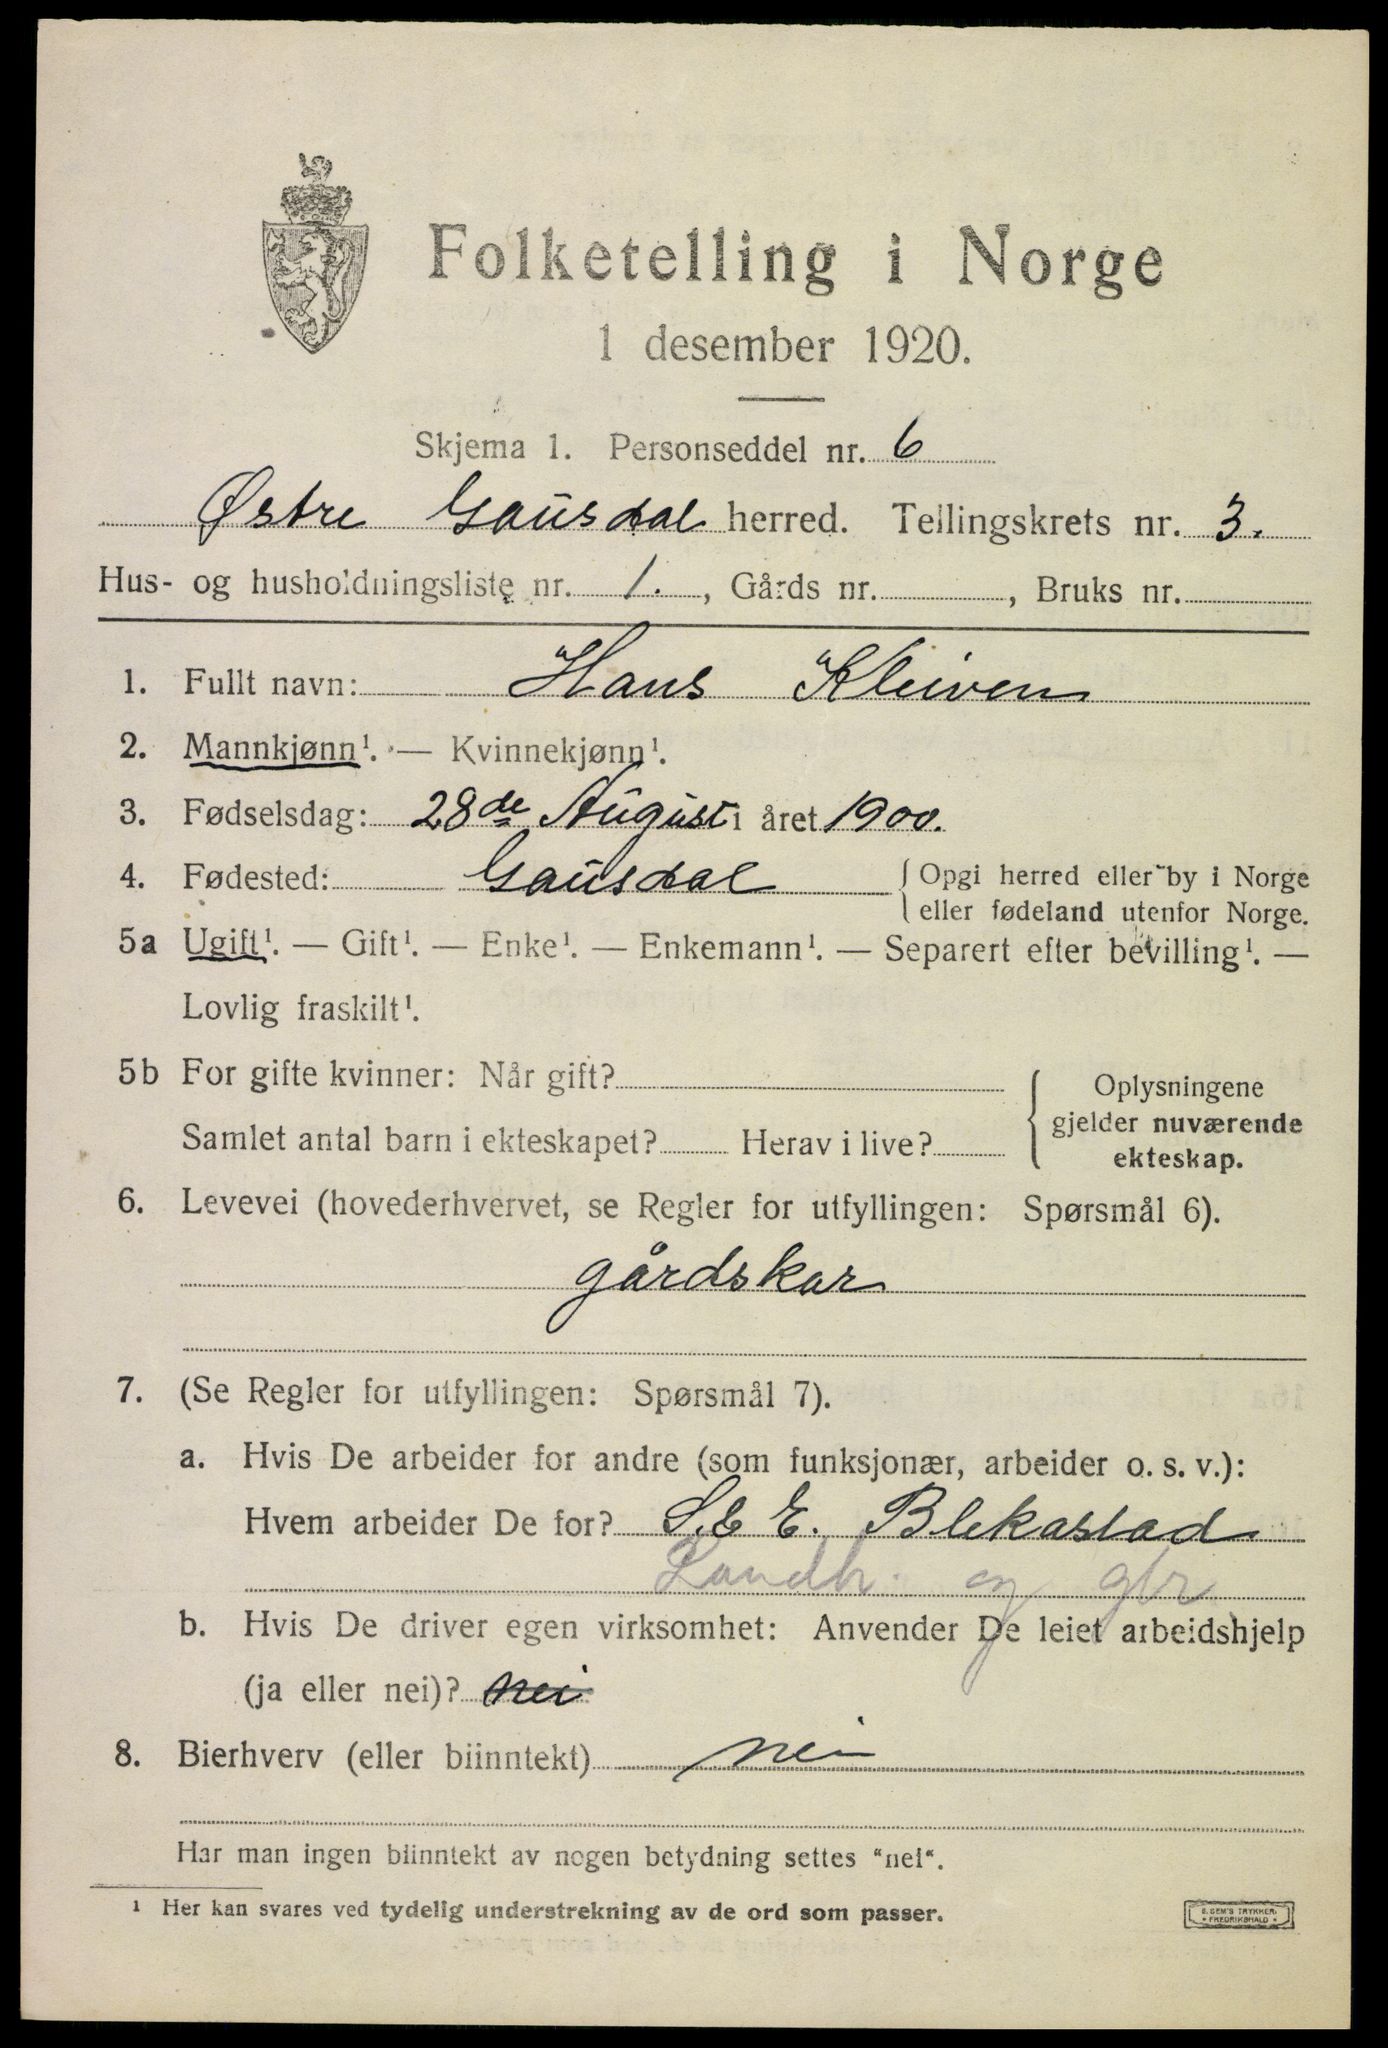 Folketelling i Norge
1 desember 1920.
Skjema 1. Personseddel nr. 6
Østre Gausdal herred. Tellingskrets nr. 3.
Hus- og husholdningsliste nr. 1. , Gårds nr. , Bruks nr.
1. Fullt navn: Hans Kleiven
2. Mannkjønn¹. — Kvinnekjønn¹.
3. Fødselsdag: 28de August i året 1900.
4. Fødested: Gausdal { Opgi herred eller by i Norge
eller fødeland utenfor Norge.
5a Ugift¹. — Gift¹. — Enke¹. — Enkemann¹. — Separert efter bevilling¹. —
Lovlig fraskilt¹.
5b For gifte kvinner: Når gift?
Samlet antal barn i ekteskapet? Herav i live?
{ Oplysningene
gjelder nuværende
ekteskap.
6. Levevei (hovederhvervet, se Regler for utfyllingen: Spørsmål 6).
gårdskar
7. (Se Regler for utfyllingen: Spørsmål 7).
a. Hvis De arbeider for andre (som funksjonær, arbeider o. s. v.):
Hvem arbeider De for? E. Blekastad
og gbr
b. Hvis De driver egen virksomhet: Anvender De leiet arbeidshjelp
(ja eller nei)? nei
8. Bierhverv (eller biinntekt) nei
Har man ingen biinntekt av nogen betydning settes "nei".
1 Her kan svares ved tydelig understrekning av de ord som passer.
E. SEM'S TRYKKERI
* FREDRIKSHALD *